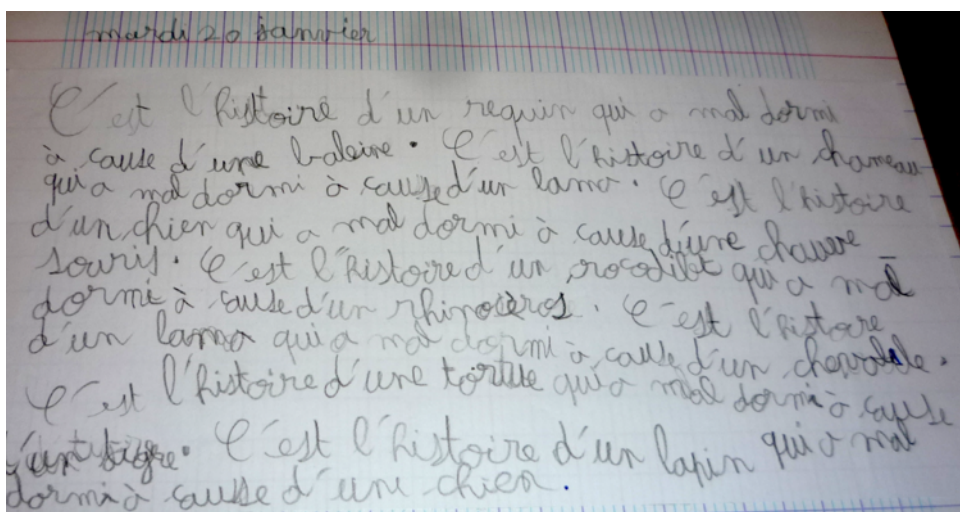 mardi 20 janvier
C'est l'histoire d'un requin qui a mal dormi
à cause d'une baleine. C'est l'histoire d'un chameau
qui a mal dormi à cause d'un lama. C'est l'histoire
d'un chien qui a mal dormi à cause d'une chauve
souris. C'est l'histoire d'un crocodile qui a mal
dormi à cause d'un rhinocéros. C'est l'histoire
d'un lama qui a mal dormi à cause d'un
C'est l'histoire d'une tortue qui a mal dormi à cause
d'un tigre. C'est l'histoire d'un lapin qui a mal
dormi à cause d'une chien.